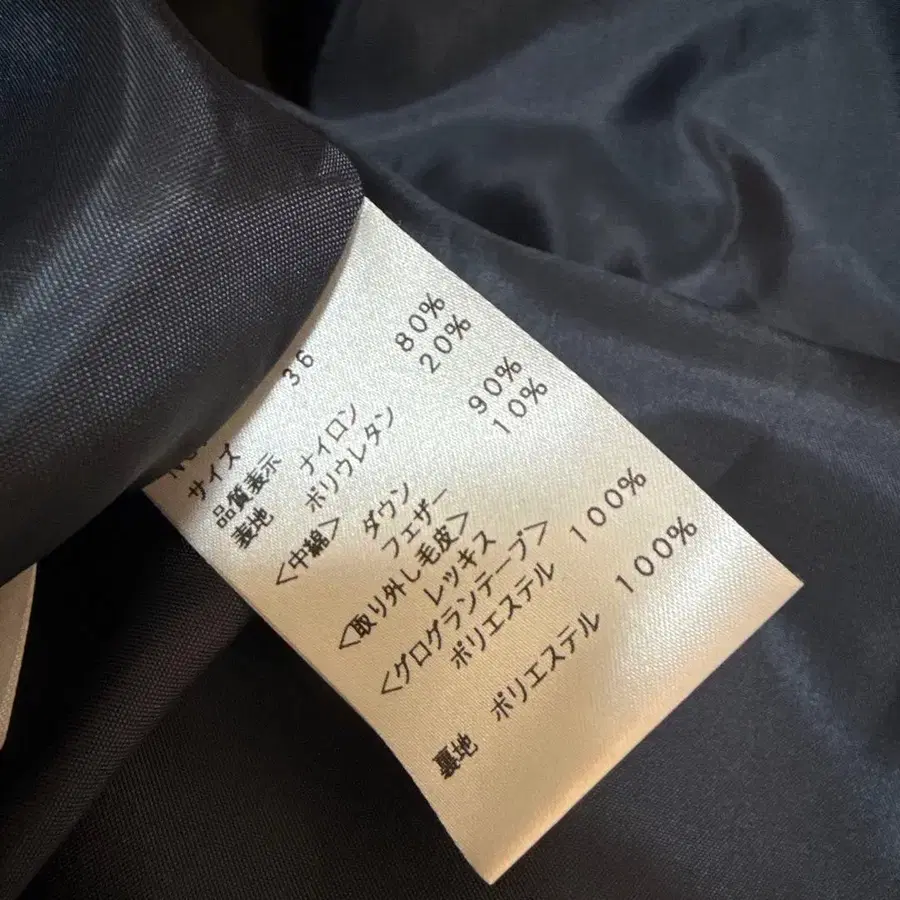 サイズ 36
品質表示
表地 ナイロン 80%
ポリウレタン 20%
<中綿> ダウン 90%
フェザー 10%
<取り外し毛皮>
レッキス
<グログランテープ>
ポリエステル 100%
裏地 ポリエステル 100%